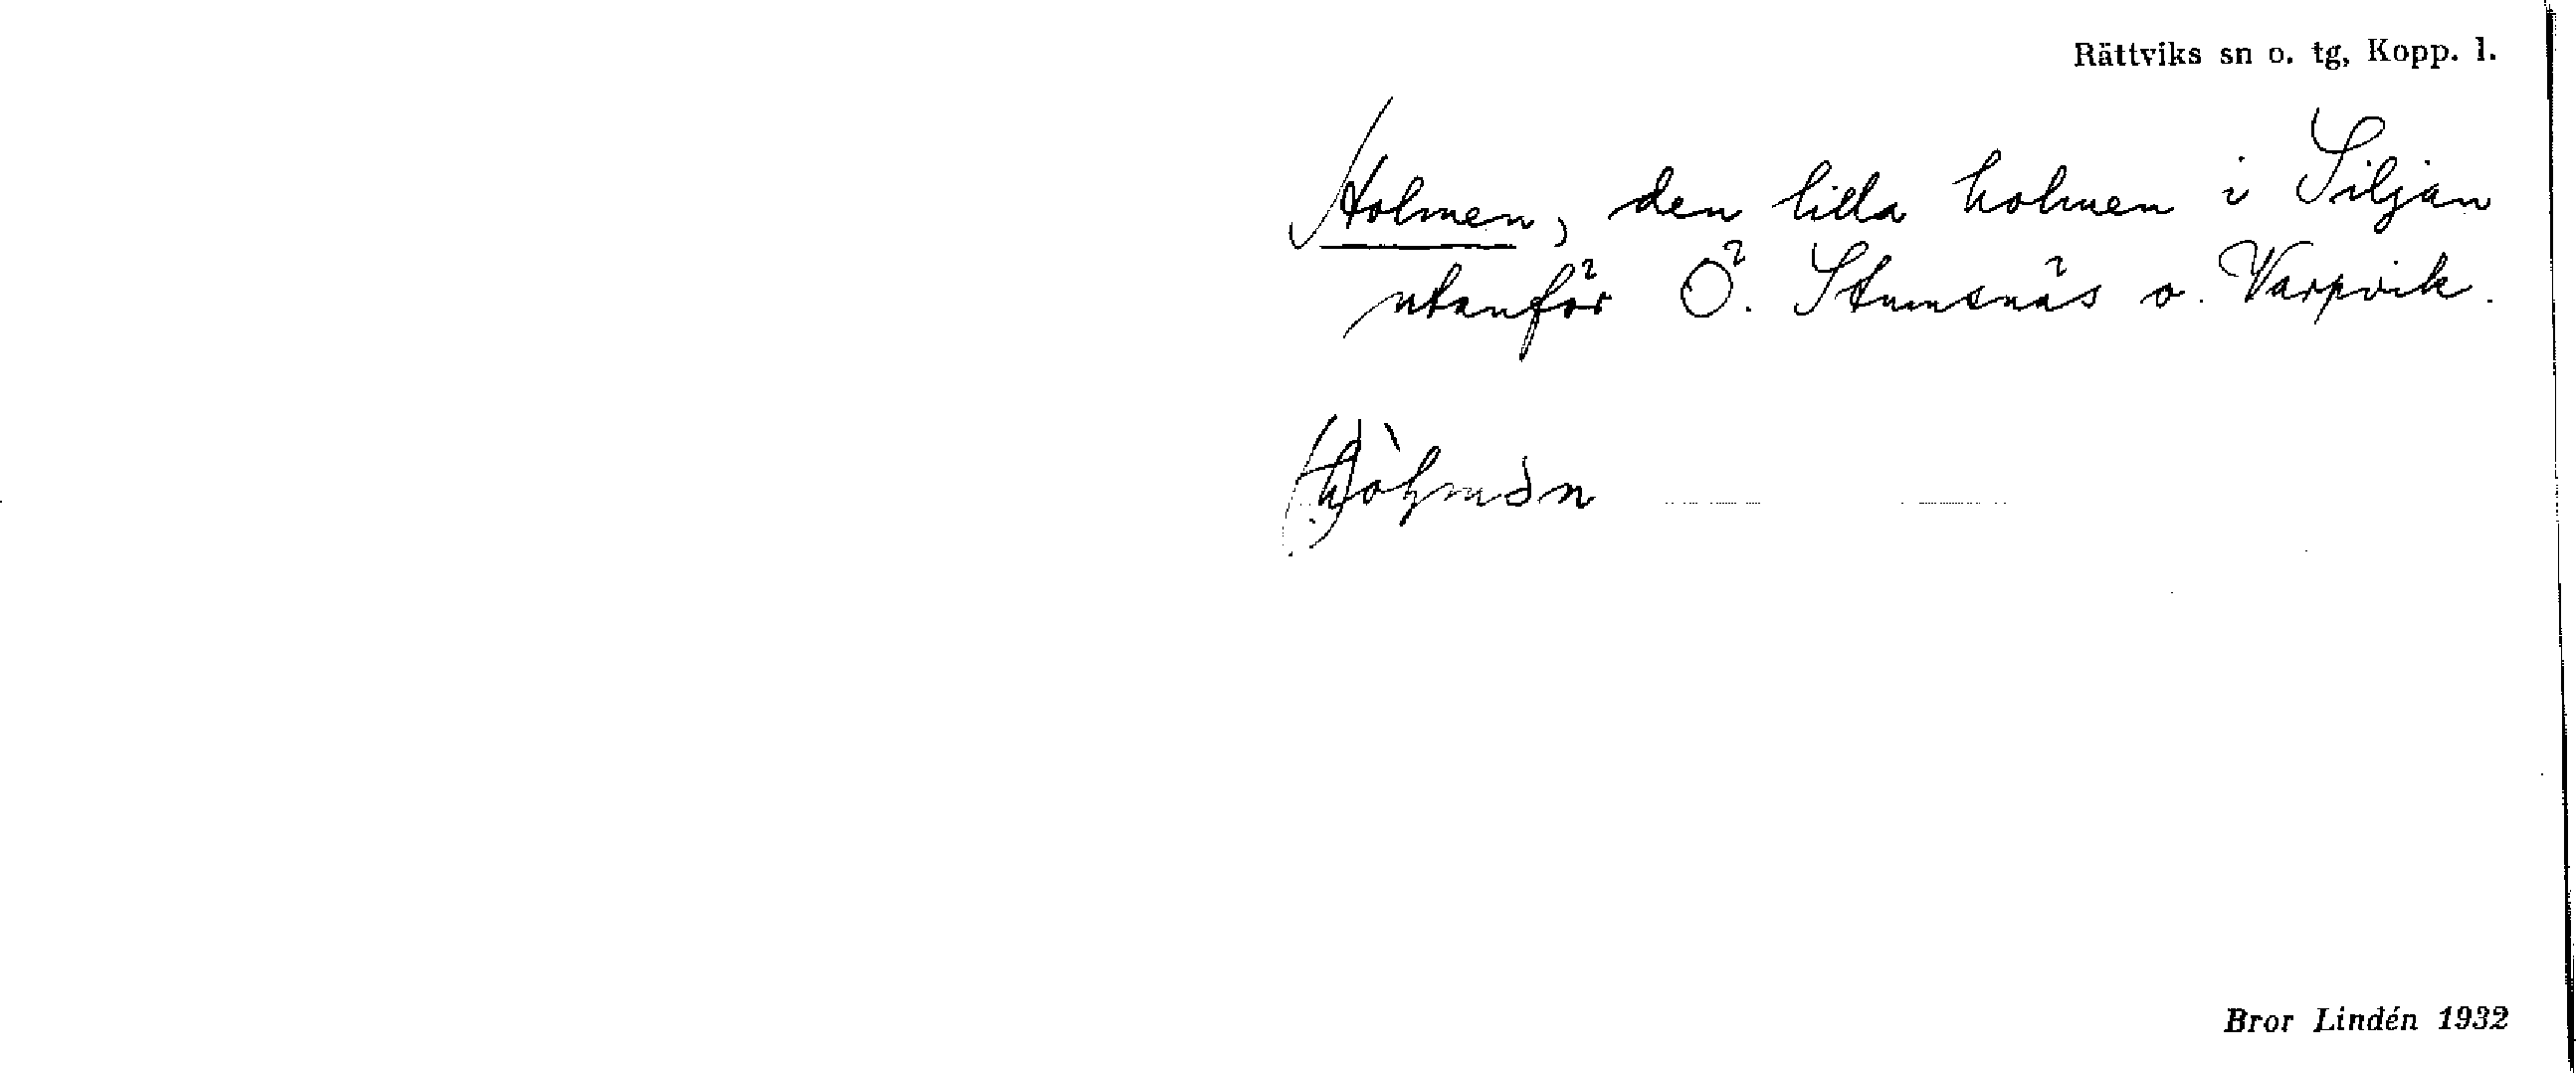 Rättviks sn o. tg, Kopp. l.
Holmen, den lilla holmen i Siljan
utanför Ö. Stumsnäs o. Varpvik.
Bror Lindén 1932